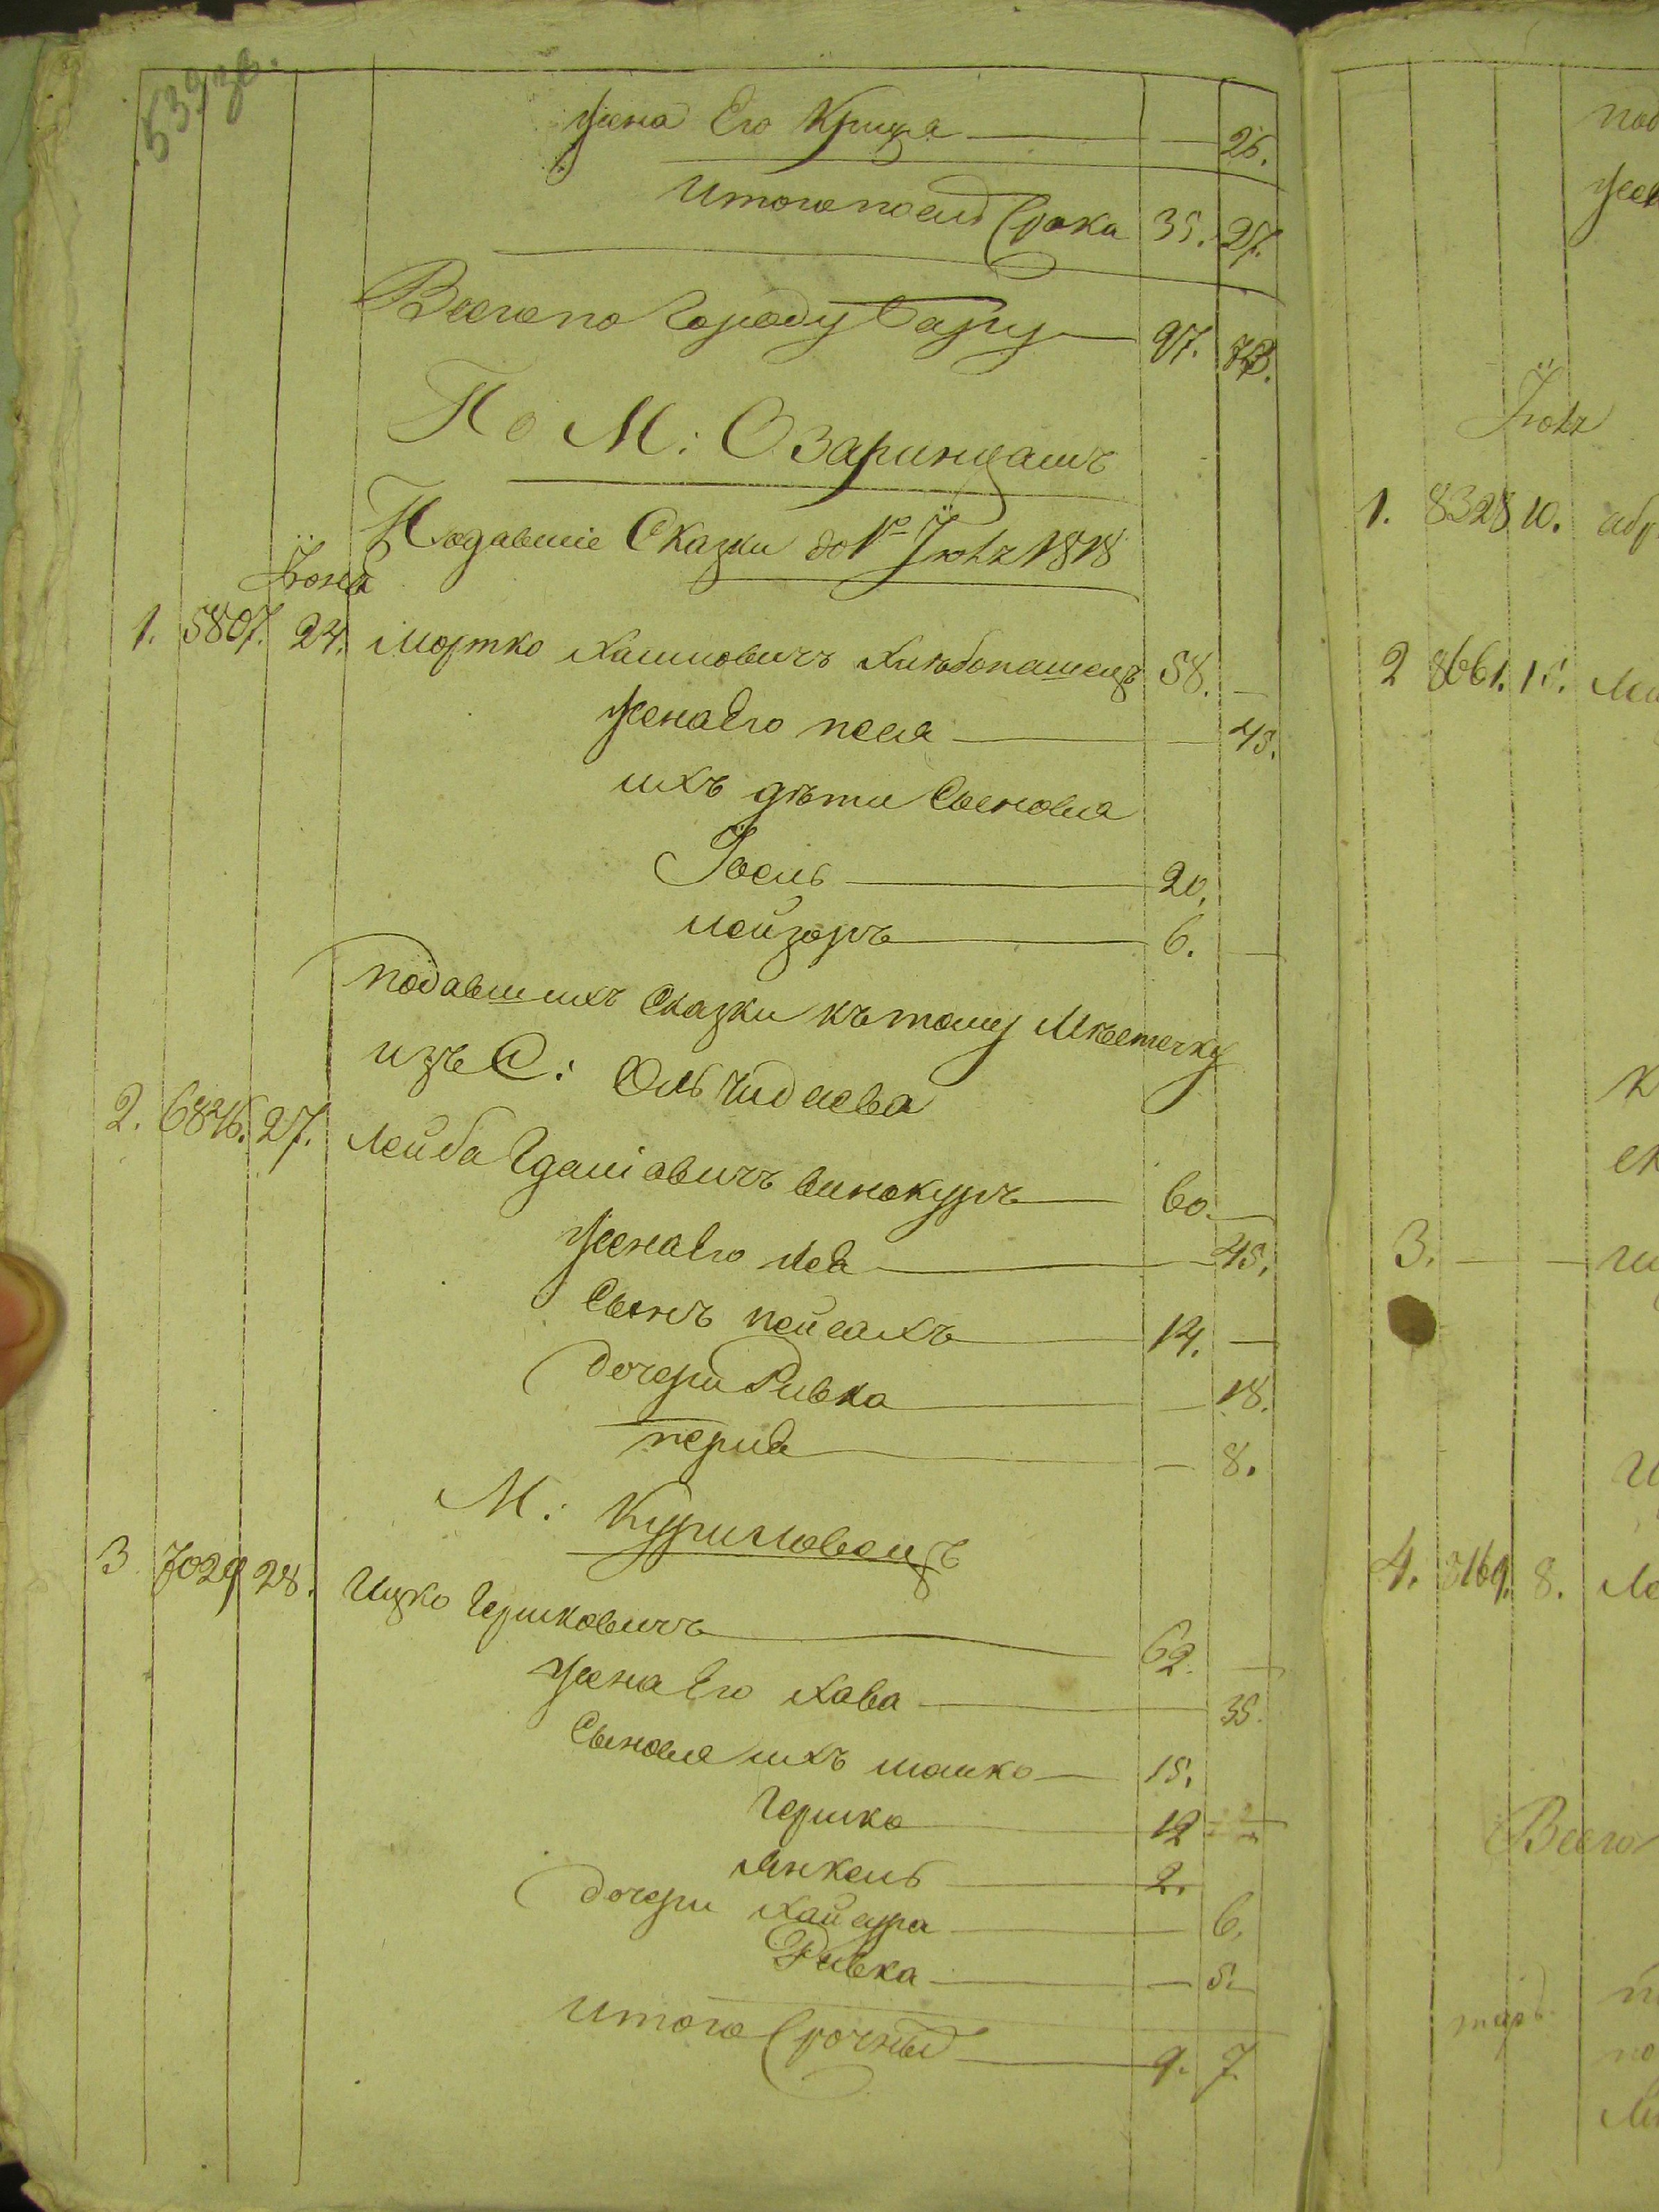 539 зв.
жена Его Крища — 26.
Итого послѣ срока 35. 27.
Всего по городу Бару 97. 73.
По М: Озаринцамъ
Подавшіе Сказки до 1го Іюля 1818
Іюня
1. 5807. 24. Мортко Хаимовичъ Хлѣбопашецъ 58. —
жена Его песя — 45.
ихъ дѣти Сыновья
Іосль 20.
лейзоръ 6. —
подавшихъ Сказки къ тому Мѣстечку
изъ С: Ольчидаева
2. 6846. 27. Лейба Гдаліовичъ винокуръ 60. —
жена Его Лея — 45.
Сынъ пейсахъ 14. —
дочери Ривка — 18.
перля — 8.
М: Куриловецъ
3 7029 28. Ицко Гершковичъ 62. —
жена Его Хава 35.
Сыновья ихъ мошко 15.
Гершко 12
Янкель 2.
дочери Хайсура 6.
Ривка — 5.
Итого срочныхъ 9. 7.
Іюля
1. 8328 10.
2 8661. 15.
3. — —
4. 3169. 8.
Всего